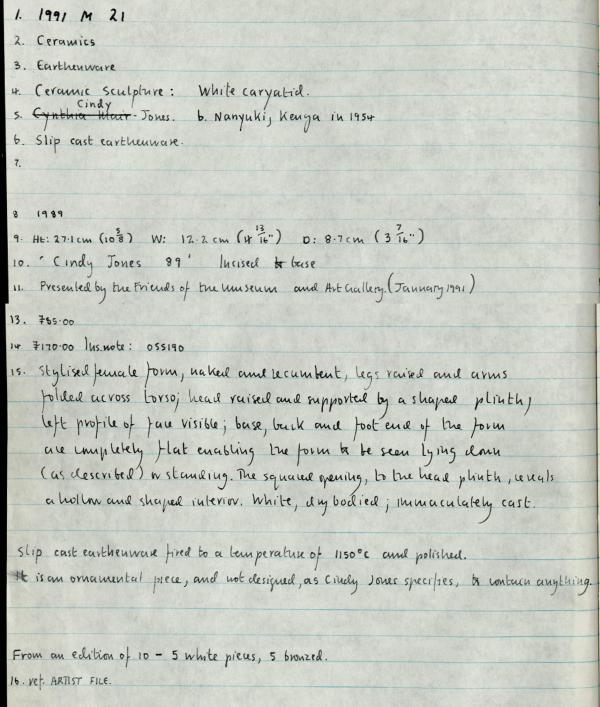 1. 1991 M 21
2. Ceramics
3. Earthenware
4. Ceramic sculpture: White caryatid.
Cindy
5. Cynthia Blair Jones. b. Nanyuki, Kenya in 1954
6. Slip cast earthenware.
7.
8 1989
9. Ht: 27.1cm (10 5/8) W: 12.2 cm (4 13/16") D: 8.7cm (3 7/16")
10. ' Cindy Jones 89' Incised base
11. Presented by the Friends of the Museum and Art Gallery. (January 1991)
13. £85.00
14 £170.00 Ins. note: 055190
15. Stylised female form, naked and recumbent, legs raised and arms
folded across torso; head raised and supported by a shaped plinth,
left profile of face visible; base, back and foot end of the form
are completely flat enabling the form to be seen lying down
(as described) or standing. The squared opening, to the head plinth, reveals
a hollow and shaped interior. White, dry bodied; immaculately cast.
Slip cast earthenware fired to a temperature of 1150°c and polished.
It is an ornamental piece, and not designed, as Cindy Jones specifies, to contain anything.
From an edition of 10 - 5 white pieces, 5 bronzed.
16. ref. ARTIST FILE.